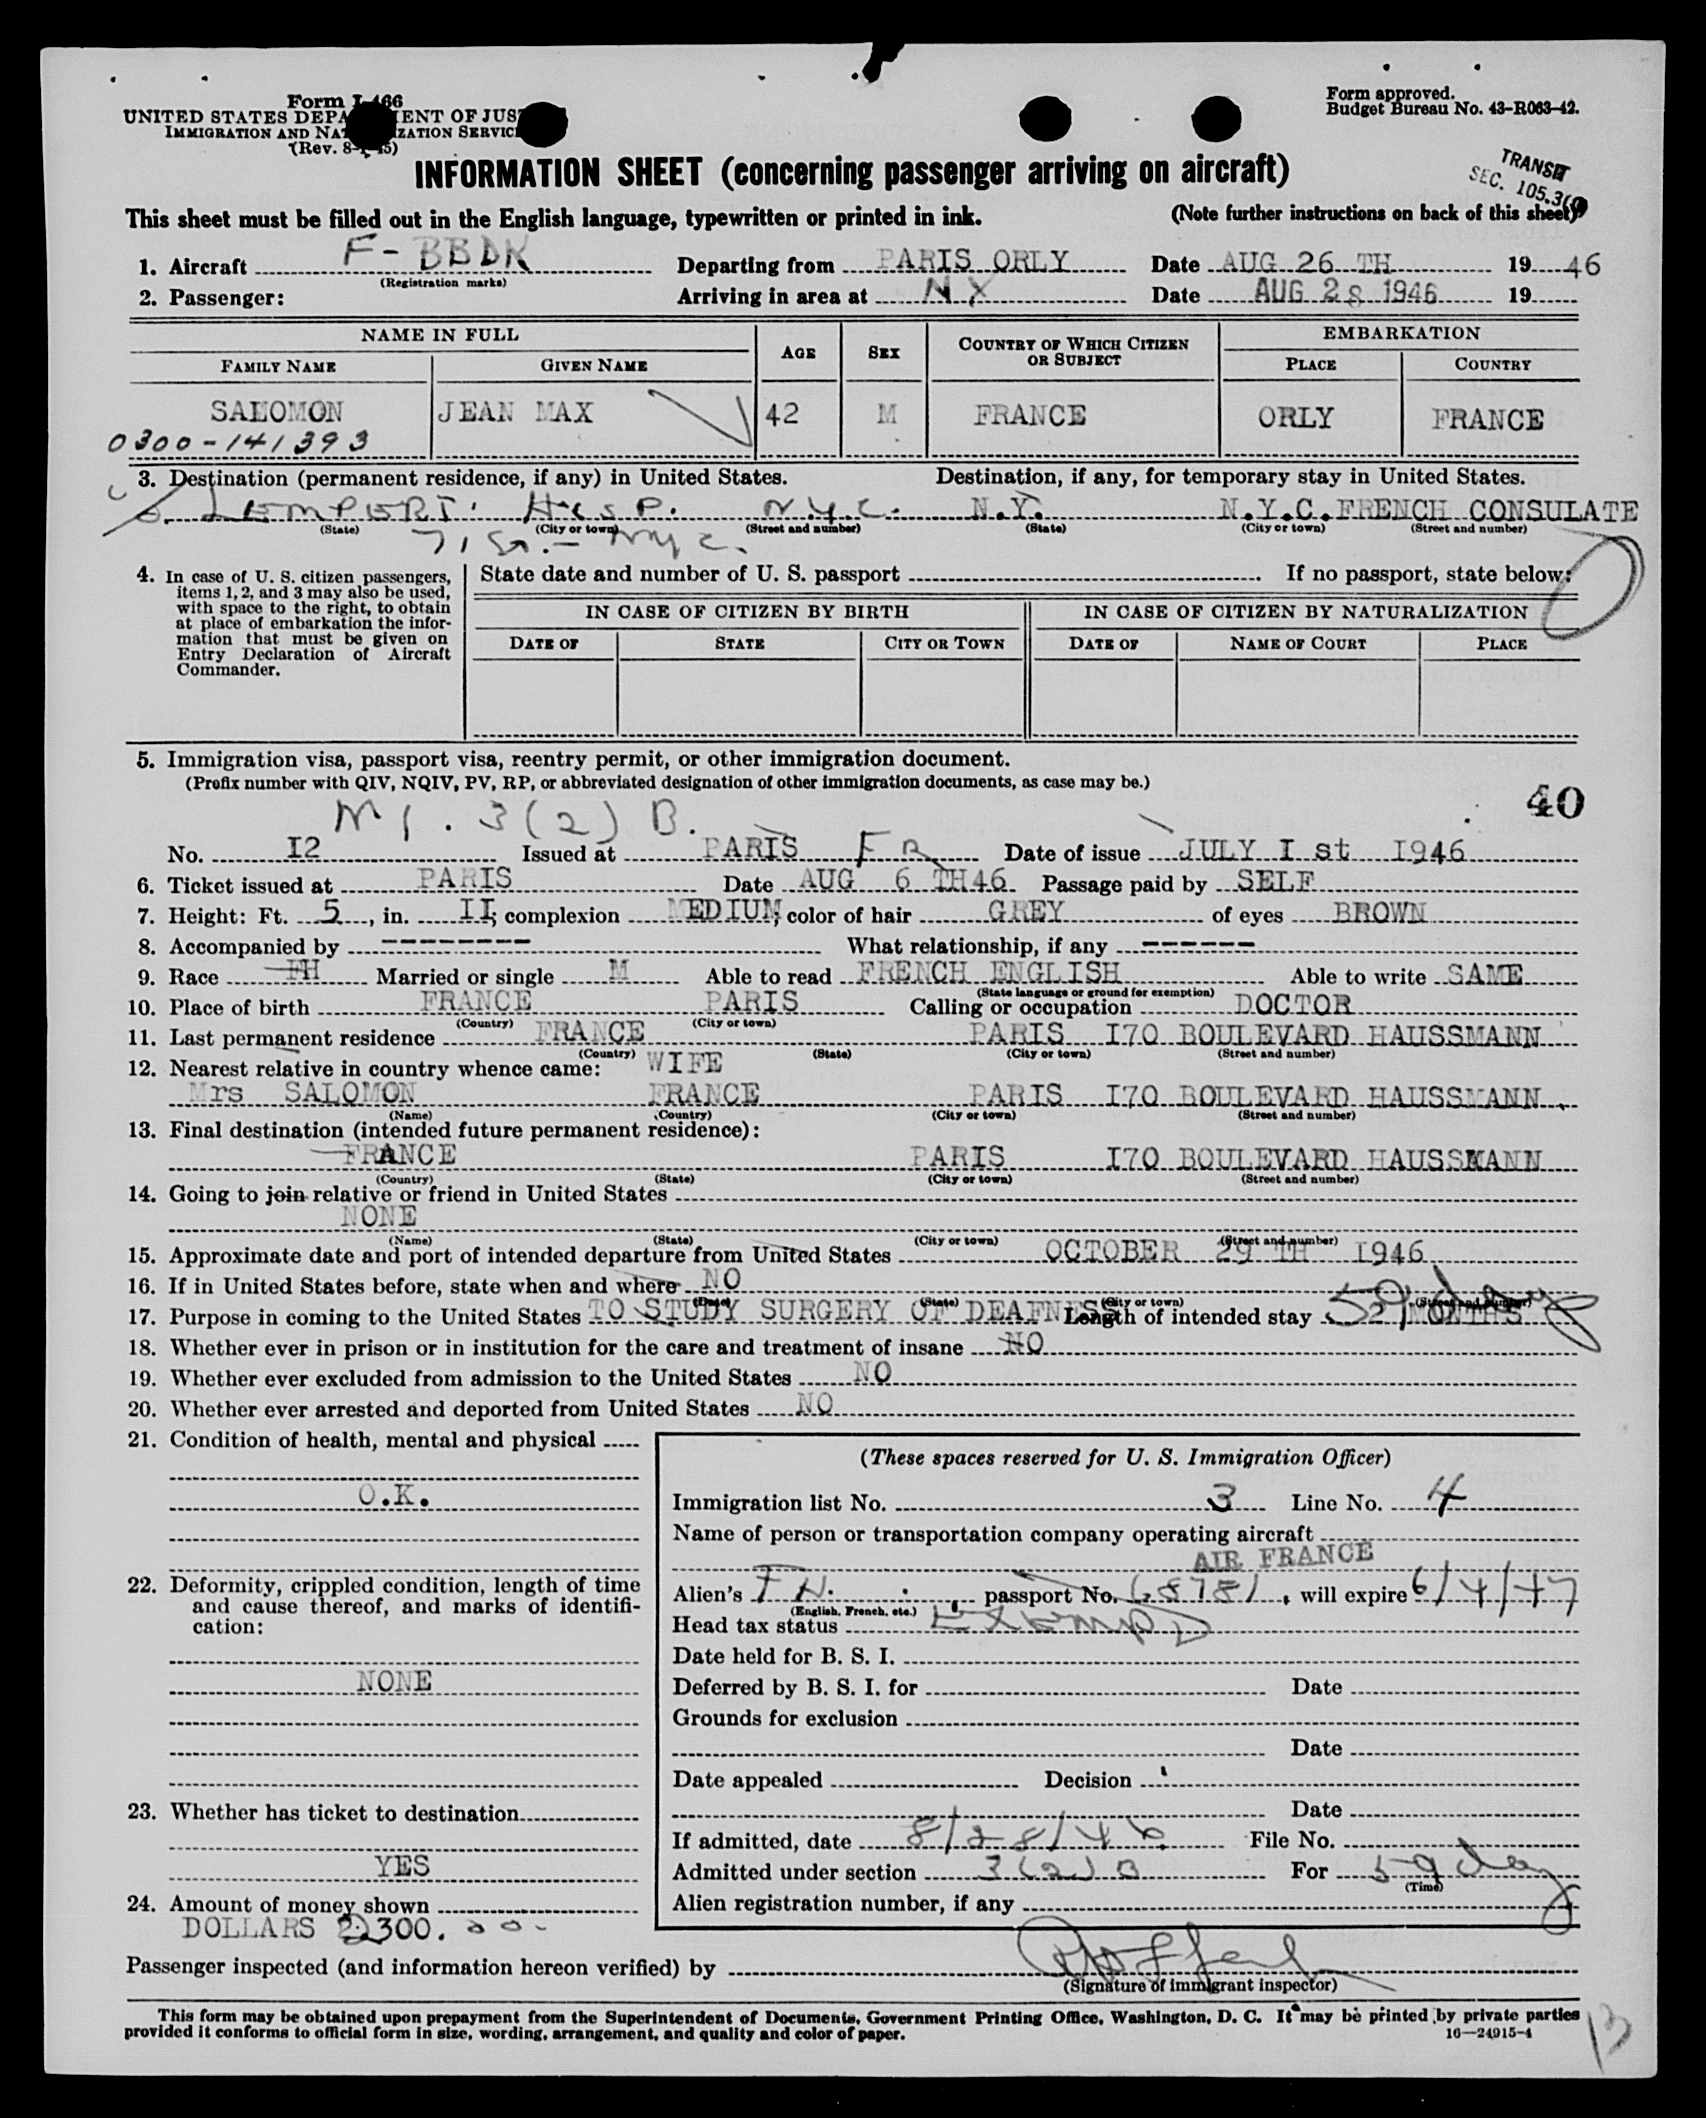 Form I-466
UNITED STATES DEPARTMENT OF JUSTICE
IMMIGRATION AND NATURALIZATION SERVICE
(Rev. 8-1-45)
Form approved.
Budget Bureau No. 43-R063-42.
INFORMATION SHEET (concerning passenger arriving on aircraft)
TRANSIT
SEC. 105.3(
This sheet must be filled out in the English language, typewritten or printed in ink. (Note further instructions on back of this sheet)
1. Aircraft F-BBDK Departing from PARIS ORLY Date AUG 26 TH 1946
(Registration marks)
2. Passenger: Arriving in area at NY Date AUG 28 1946 19
NAME IN FULL AGE SEX COUNTRY OF WHICH CITIZEN OR SUBJECT EMBARKATION
FAMILY NAME GIVEN NAME PLACE COUNTRY
SALOMON JEAN MAX 42 M FRANCE ORLY FRANCE
0300-141393
3. Destination (permanent residence, if any) in United States. Destination, if any, for temporary stay in United States.
LEMPERT HOSP. N.Y.C. N.Y. N.Y.C. FRENCH CONSULATE
(State) (City or town) (Street and number) (State) (City or town) (Street and number)
71 St. - NYC.
4. In case of U. S. citizen passengers, items 1, 2, and 3 may also be used, with space to the right, to obtain at place of embarkation the information that must be given on Entry Declaration of Aircraft Commander.
State date and number of U. S. passport If no passport, state below:
IN CASE OF CITIZEN BY BIRTH IN CASE OF CITIZEN BY NATURALIZATION
DATE OF STATE CITY OR TOWN DATE OF NAME OF COURT PLACE
5. Immigration visa, passport visa, reentry permit, or other immigration document.
(Prefix number with QIV, NQIV, PV, RP, or abbreviated designation of other immigration documents, as case may be.)
40
3(2) B.
No. I2 Issued at PARIS FR Date of issue JULY I st I946
6. Ticket issued at PARIS Date AUG 6 TH46 Passage paid by SELF
7. Height: Ft. 5, in. II; complexion MEDIUM; color of hair GREY of eyes BROWN
8. Accompanied by -------- What relationship, if any ------
9. Race FH Married or single M Able to read FRENCH ENGLISH Able to write SAME
(State language or ground for exemption)
10. Place of birth FRANCE PARIS Calling or occupation DOCTOR
(Country) (City or town)
11. Last permanent residence FRANCE PARIS I70 BOULEVARD HAUSSMANN
(Country) (State) (City or town) (Street and number)
12. Nearest relative in country whence came: WIFE
Mrs SALOMON FRANCE PARIS I70 BOULEVARD HAUSSMANN
(Name) (Country) (City or town) (Street and number)
13. Final destination (intended future permanent residence):
FRANCE PARIS I70 BOULEVARD HAUSSMANN
(Country) (State) (City or town) (Street and number)
14. Going to join relative or friend in United States
NONE
(Name) (State) (City or town) (Street and number)
15. Approximate date and port of intended departure from United States OCTOBER 29 TH I946
16. If in United States before, state when and where NO
(Date) (State) (City or town) (Street and number)
17. Purpose in coming to the United States TO STUDY SURGERY OF DEAFNESS Length of intended stay 59 days 2 MONTHS
18. Whether ever in prison or in institution for the care and treatment of insane NO
19. Whether ever excluded from admission to the United States NO
20. Whether ever arrested and deported from United States NO
21. Condition of health, mental and physical
O.K.
22. Deformity, crippled condition, length of time and cause thereof, and marks of identification:
NONE
23. Whether has ticket to destination
YES
24. Amount of money shown
DOLLARS 2300.00-
(These spaces reserved for U. S. Immigration Officer)
Immigration list No. 3 Line No. 4
Name of person or transportation company operating aircraft
AIR FRANCE
Alien's FH. passport No. 68781, will expire 6/4/47
(English, French, etc.)
Head tax status Exempt
Date held for B. S. I.
Deferred by B. S. I. for Date
Grounds for exclusion
Date
Date appealed Decision
Date
If admitted, date 8/28/46 File No.
Admitted under section 3(2)B For 59 days
(Time)
Alien registration number, if any
Passenger inspected (and information hereon verified) by
(Signature of immigrant inspector)
This form may be obtained upon prepayment from the Superintendent of Documents, Government Printing Office, Washington, D. C. It may be printed by private parties
provided it conforms to official form in size, wording, arrangement, and quality and color of paper. 16—24915-4
13